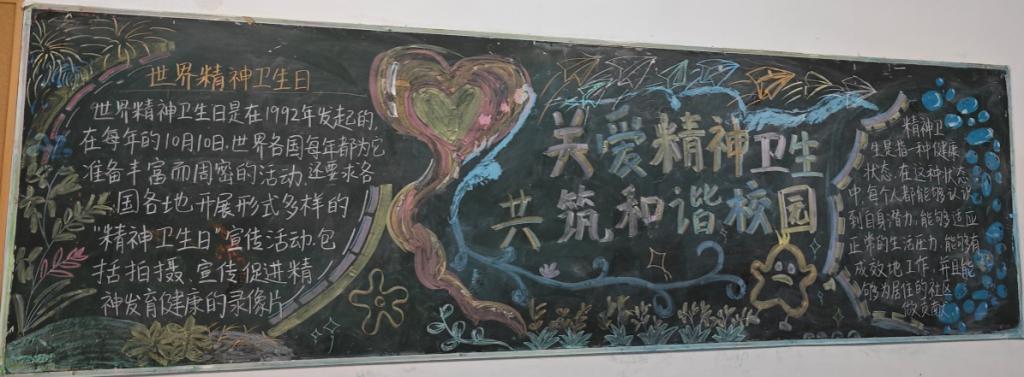 世界精神卫生日
世界精神卫生日是在1992年发起的,
在每年的10月10日.世界各国每年都为它
准备丰富而周密的活动.还要求各
国各地开展形式多样的
"精神卫生日"宣传活动.包
括拍摄、宣传促进精
神发育健康的录像片
关爱精神卫生
共筑和谐校园
精神卫
生是指一种健康
状态.在这种状态
中,每个人都能够认识
到自身潜力,能够适应
正常的生活压力,能够有
成效地工作,并且能
够为居住的社区
做贡献